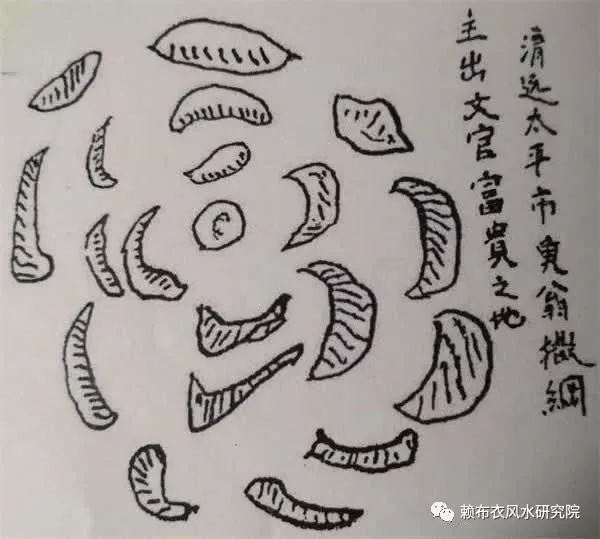 清远太平市魚翁撒網
主出文官富貴之地
赖布衣风水研究院